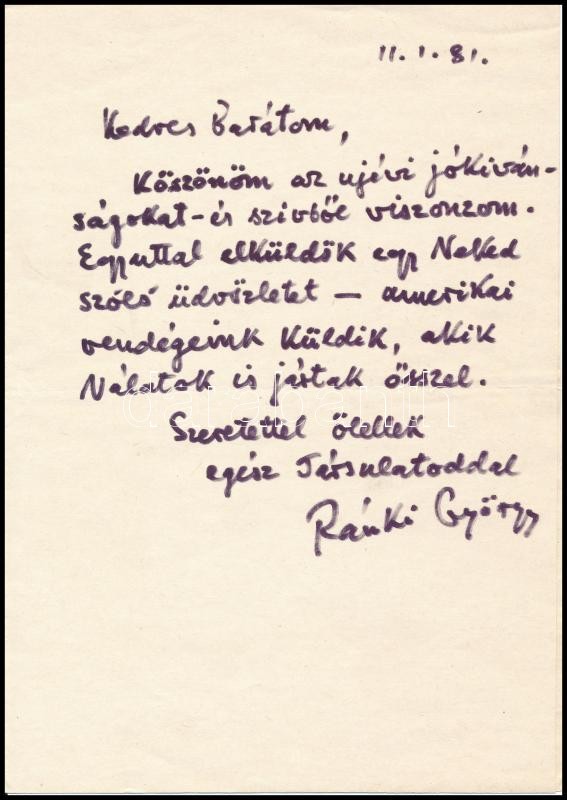 11. 1. 81.
Kedves Barátom,
Köszönöm az ujévi jókiván-
ságokat - és szivből viszonzom.
Egyuttal elküldök egy Neked
szóló üdvözletet — amerikai
vendégeink küldik, akik
Nálatok is jártak ősszel.
Szeretettel ölellek
egész Társulatoddal
Ránki György
darabanth